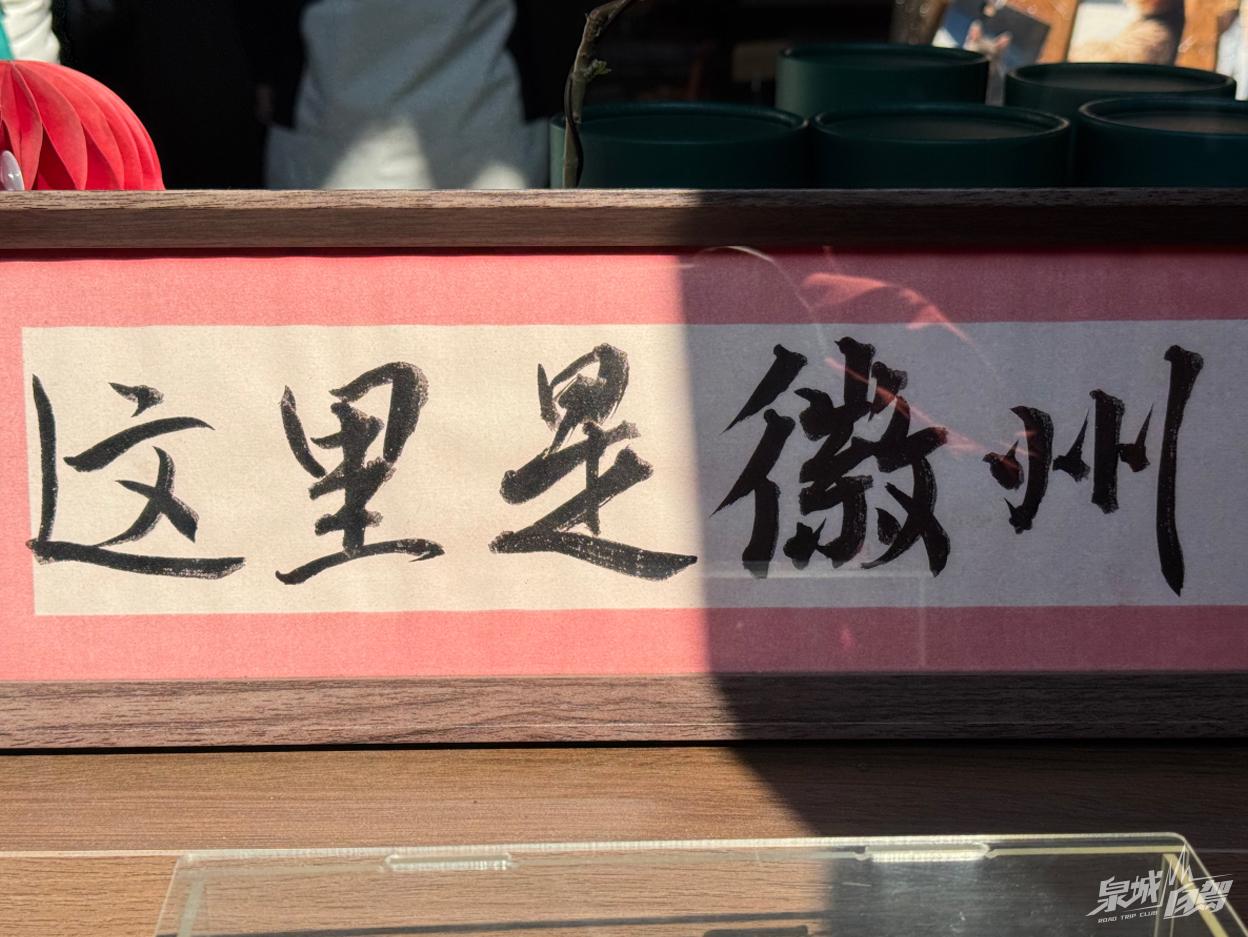 这里是徽州
泉城自驾
ROAD TRIP CLUB